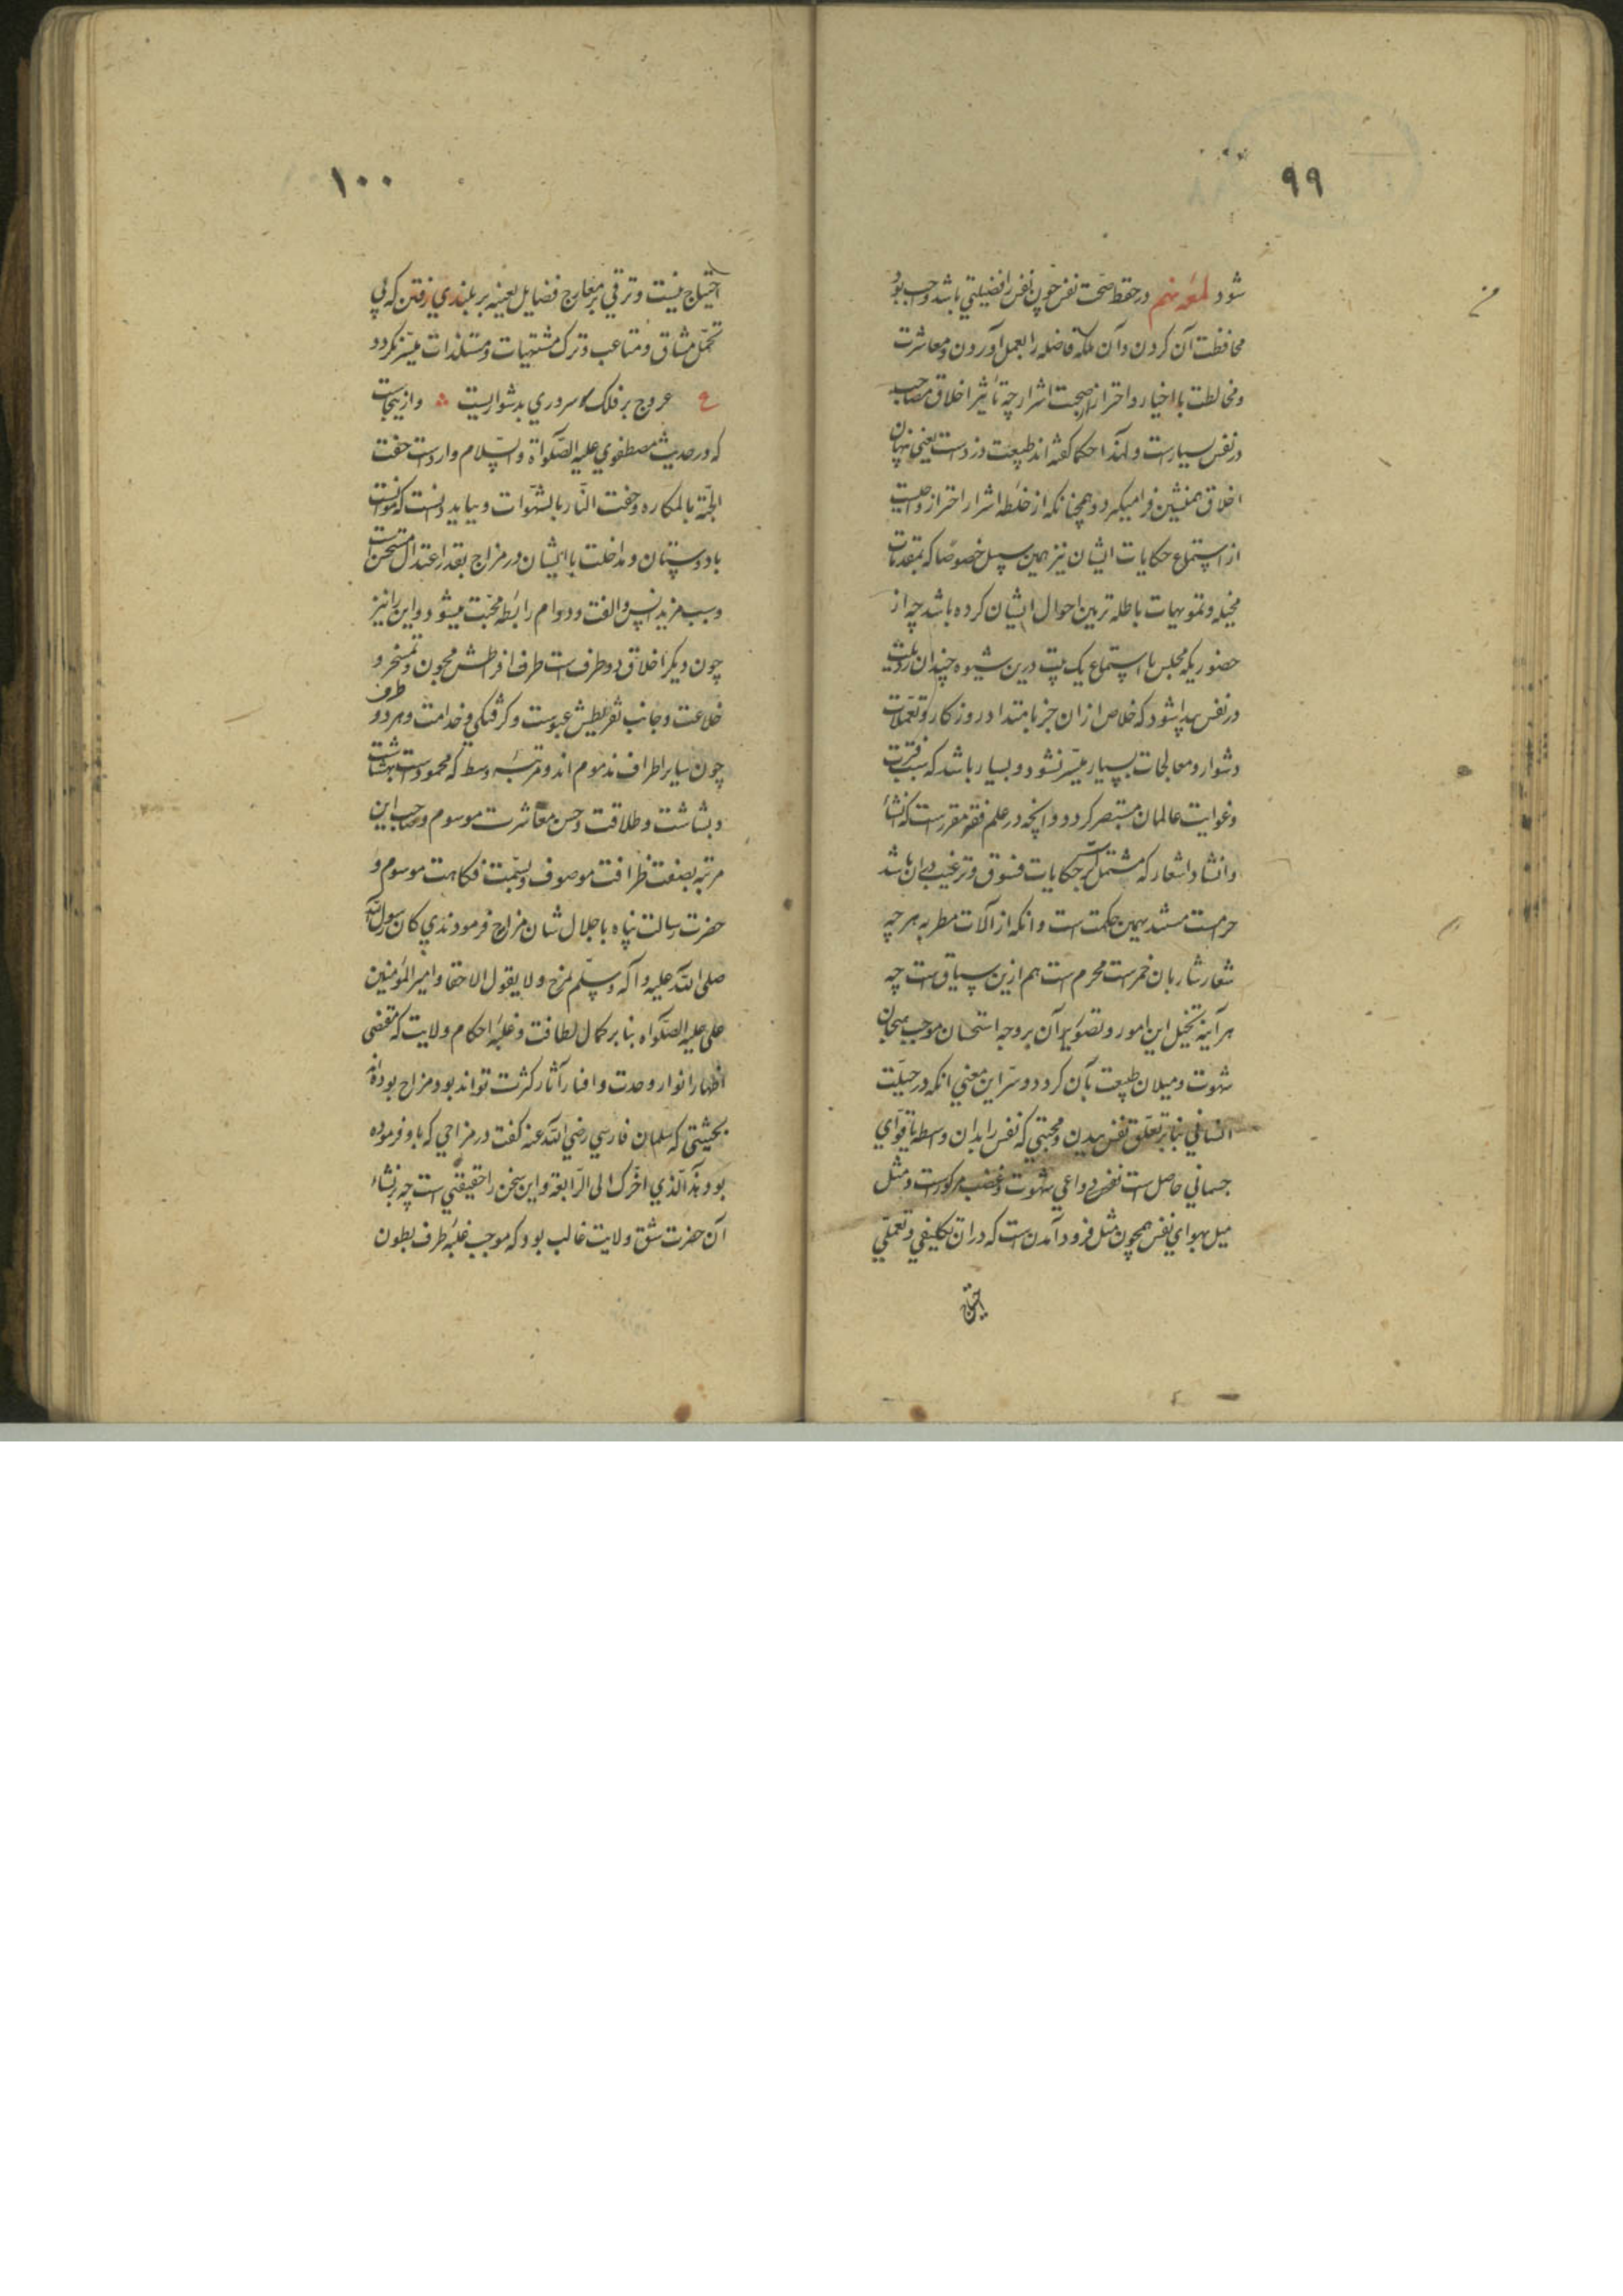 ۹۹
شود لمعه نهم در حفظ صحت نفس چون نفس را فضیلتی باشد واجب بود
محافظت آن کردن و آن ملکه فاضله را بعمل آوردن و معاشرت
و مخالطت با اخیار و احتراز از صحبت اشرار چه تأثیر اخلاق مصاحب
در نفس بسیارست و لهذا حکما گفته اند طبیعت دزدست یعنی پنهان
اخلاق همنشین فرا میگیرد و همچنانکه از خلطه اشرار احتراز واجبست
از استماع حکایات ایشان نیز همین سبیل خصوصا که بمقدمات
مخیله و تمویهات باطله تزیین احوال ایشان کرده باشد چه از
حضور یکه مجلس با استماع یک بیت درین شیوه چندان رذیلت
در نفس پیدا شود که خلاص از ان جز بامتداد روزکار و تعملات
دشوار و معالجات بسیار میسر نشود و بسیار باشد که سبب فترت
و غوایت عالمان مستبصر کردد و وانچه در علم فقه مقررست که انشاء
و انشاد اشعار که مشتمل بر حکایات فسوق و ترغیب در ان باشد
حرامست مستند بهمین حکمت است و انکه از آلات مطربه هر چه
شعار شاربان خمرست محرم است هم ازین سیاقست چه
هر آینه تخیل این امور و تصویر آن بر وجه استحسان موجب هیجان
شهوت و میلان طبیعت بآن کردد و سر این معنی انکه در جبلت
انسانی بنا بر تعلق نفس ببدن و محبتی که نفس را بدان واسطه با قوای
جسمانی حاصل است نفس دواعی شهوت و غضب مرکوزست و مثل
میل بهوای نفس همچون مثل فرود آمدن است که در ان تکلیفی و تعملی
احتیاج
۱۰۰
احتیاج نیست و ترقی بر معارج فضایل بعینه بر بلندی رفتن که بی
تحمل مشاق و متاعب و ترک مشتهیات و مستلذات میسر نکردد
ع عروج بر فلک سروری بدشواریست و ازینجاست
که در حدیث مصطفوی علیه الصلواة والسلام واردست حفت
الجنة بالمکاره و حفت النار بالشهوات و بباید دانست که موانست
با دوستان و مداخلت با ایشان در مزاج بقدر اعتدال مستحسن است
و سبب مزید انس و الفت و دوام رابطه محبت میشود و این را نیز
چون دیکر اخلاق دو طرف است طرف افراطش مجون و تمسخر و
خلاعت و جانب تفریطش عبوست و کرفتکی و فدامت و هر دو طرف
چون سایر اطراف مذموم اند و مرتبه وسط که محمودست بهشاشت
و بشاشت و طلاقت و حسن معاشرت موسوم و صاحب این
مرتبه بصفت ظرافت موصوف و بسمت فکاهت موسوم و
حضرت رسالت پناه با جلال شان مزاح فرمودندی کان رسول الله
صلی الله علیه وآله وسلم یمزح ولا یقول الا حقا و امیر المؤمنین
علی علیه الصلواه بنا بر کمال لطافت و غلبه احکام ولایت که مقتضی
اظهار انوار وحدت و افناء آثار کثرت تواند بود مزاح بوده اند
بحیثیتی که سلمان فارسی رضی الله عنه کفت در مزاحی که با و فرموده
بود هذا الذی اخرک الی الرابعة و این سخن را حقیقتی است چه بر نشاء
آن حضرت شق ولایت غالب بود که موجب غلبه طرف بطون